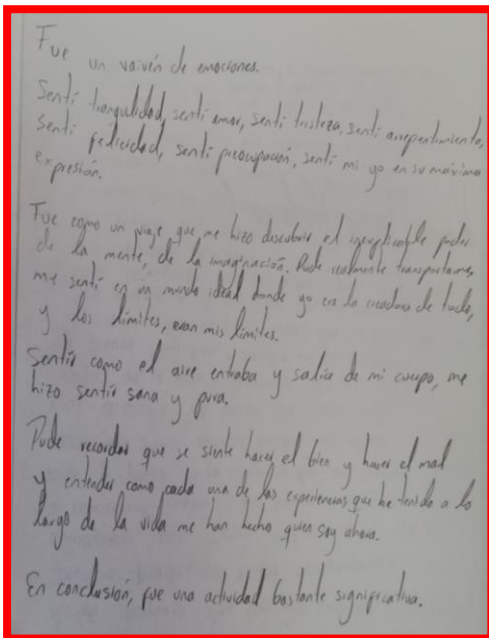 Fue un vaivén de emociones.
Sentí tranquilidad, sentí amor, sentí tristeza, sentí arrepentimiento,
Sentí felicidad, sentí preocupación, sentí mi yo en su máxima
expresión.
Fue como un viaje que me hizo descubrir el inexplicable poder
de la mente, de la imaginación. Pude realmente transportarme,
me sentí en un mundo ideal donde yo era la creadora de todo,
y los límites, eran mis límites.
Sentir como el aire entraba y salía de mi cuerpo, me
hizo sentir sana y pura.
Pude recordar que se siente hacer el bien y hacer el mal
y entender como cada una de las experiencias que he tenido a lo
largo de la vida me han hecho quien soy ahora.
En conclusión, fue una actividad bastante significativa.